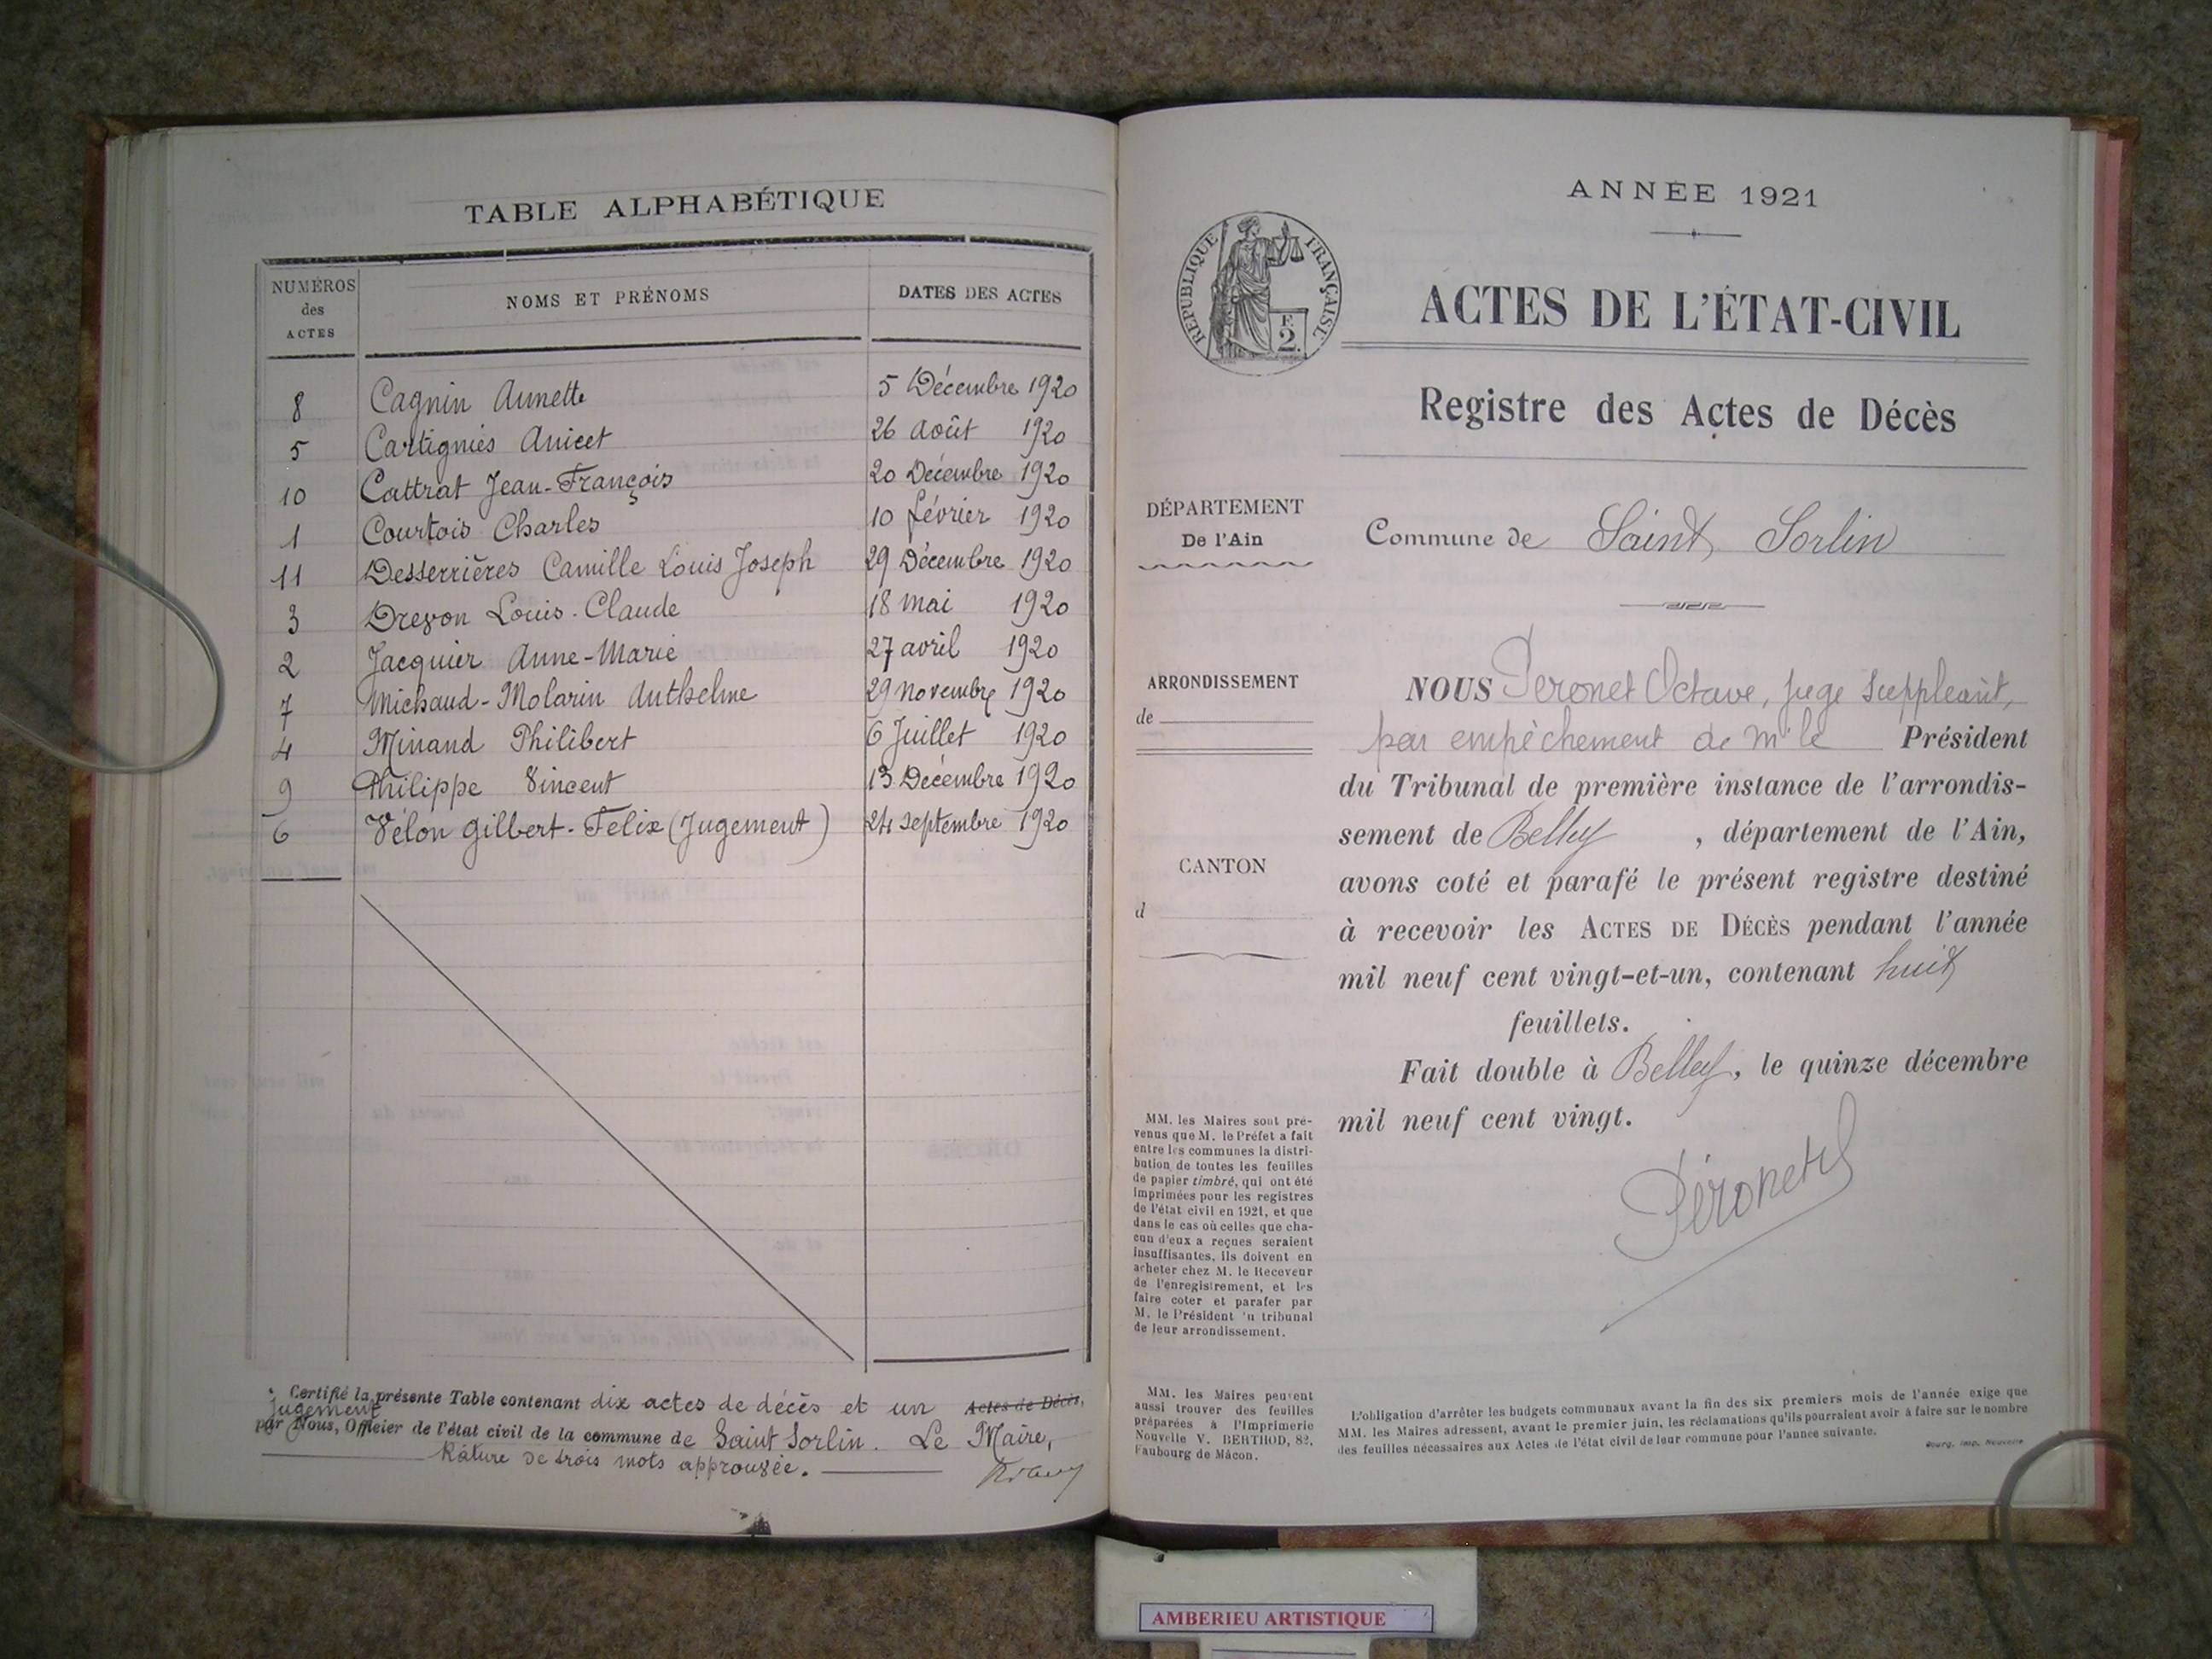 TABLE ALPHABÉTIQUE
NUMÉROS des ACTES NOMS ET PRÉNOMS DATES DES ACTES
8 Cagnin Annette 5 Décembre 1920
5 Cartigniés Anicet 26 Août 1920
10 Cattrat Jean-François 20 Décembre 1920
1 Courtois Charles 10 février 1920
11 Desserrières Camille Louis Joseph 29 Décembre 1920
3 Drevon Louis-Claude 18 mai 1920
2 Jacquier Anne-Marie 27 avril 1920
7 Michaud-Molarin Anthelme 29 novembre 1920
4 Minand Philibert 6 Juillet 1920
9 Philippe Vincent 13 Décembre 1920
6 Vélon Gilbert-Felix (Jugement) 24 septembre 1920
Certifié la présente Table contenant dix actes de décès et un Actes de Décès,
jugement
par Nous, Officier de l'état civil de la commune de Saint Sorlin. Le Maire,
Râture de trois mots approuvée.
ANNÉE 1921
RÉPUBLIQUE FRANÇAISE
F.
2.
ACTES DE L'ÉTAT-CIVIL
Registre des Actes de Décès
DÉPARTEMENT
De l'Ain
Commune de Saint Sorlin
ARRONDISSEMENT
de
CANTON
d
NOUS Péronet Octave, juge suppléant,
par empêchement de Mr le Président
du Tribunal de première instance de l'arrondis-
sement de Belley, département de l'Ain,
avons coté et parafé le présent registre destiné
à recevoir les ACTES DE DÉCÈS pendant l'année
mil neuf cent vingt-et-un, contenant huit
feuillets.
Fait double à Belley, le quinze décembre
mil neuf cent vingt.
Péronet
MM. les Maires sont pré-
venus que M. le Préfet a fait
entre les communes la distri-
bution de toutes les feuilles
de papier timbré, qui ont été
imprimées pour les registres
de l'état civil en 1921, et que
dans le cas où celles que cha-
cun d'eux a reçues seraient
insuffisantes, ils doivent en
acheter chez M. le Receveur
de l'enregistrement, et les
faire coter et parafer par
M. le Président du tribunal
de leur arrondissement.
MM. les Maires peuvent
aussi trouver des feuilles
préparées à l'Imprimerie
Nouvelle V. BERTHOD, 82,
Faubourg de Mâcon.
L'obligation d'arrêter les budgets communaux avant la fin des six premiers mois de l'année exige que
MM. les Maires adressent, avant le premier juin, les réclamations qu'ils pourraient avoir à faire sur le nombre
des feuilles nécessaires aux Actes de l'état civil de leur commune pour l'année suivante.
Bourg, Imp. Nouvelle
AMBERIEU ARTISTIQUE